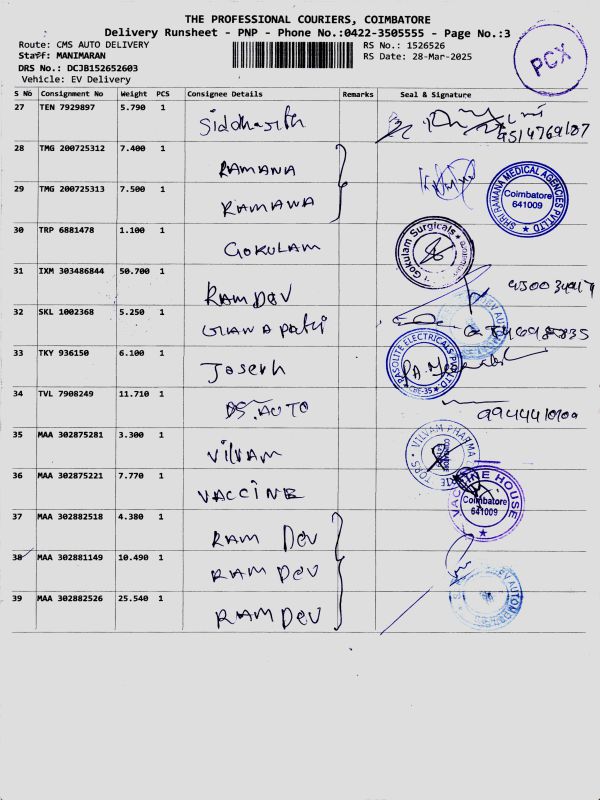 THE PROFESSIONAL COURIERS, COIMBATORE
Delivery Runsheet - PNP - Phone No.:0422-3505555 - Page No.:3
Route: CMS AUTO DELIVERY
RS No.: 1526526
Staff: MANIMARAN
RS Date: 28-Mar-2025
DRS No.: DCJB152652603
Vehicle: EV Delivery
PCX
S No Consignment No Weight PCS Consignee Details Remarks Seal & Signature
27 TEN 7929897 5.790 1 Siddharth
28 TMG 200725312 7.400 1 RAMANA
29 TMG 200725313 7.500 1 RAMANA
SHRI RAMANA MEDICAL AGENCIES PVT LTD
Coimbatore
641009
30 TRP 6881478 1.100 1 GOKULAM
Gokulam Surgicals
31 IXM 303486844 50.700 1 RAM DEV
32 SKL 1002368 5.250 1
33 TKY 936150 6.100 1 Joseph
RASOLITE ELECTRICALS PVT LTD
CBE-35
34 TVL 7908249 11.710 1 DS. AUTO
35 MAA 302875281 3.300 1 VILVAM
VILVAM PHARMA
36 MAA 302875221 7.770 1 VACCINE
VACCINE HOUSE
Coimbatore
641009
37 MAA 302882518 4.380 1 RAM DEV
38 MAA 302881149 10.490 1 RAM DEV
39 MAA 302882526 25.540 1 RAM DEV